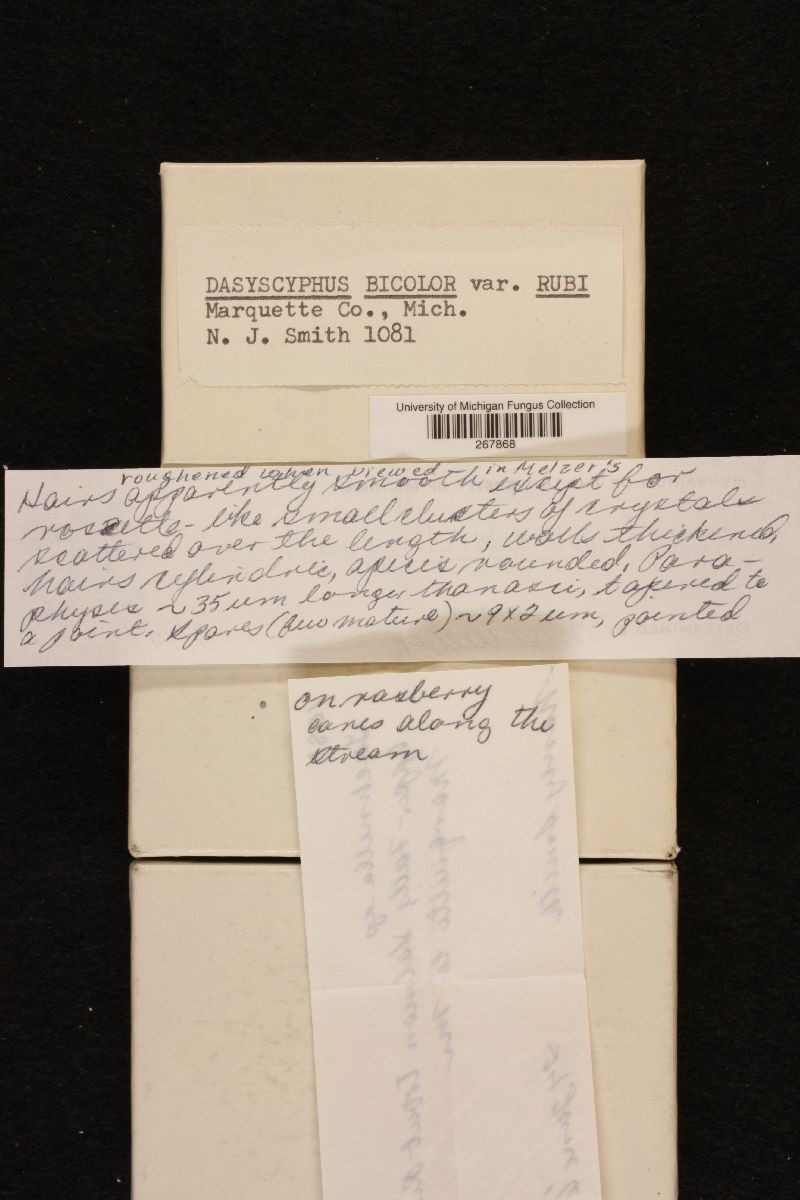 DASYSCYPHUS BICOLOR var. RUBI
Marquette Co., Mich.
N. J. Smith 1081
University of Michigan Fungus Collection
267868
roughened when viewed in Melzer's
Hairs apparently smooth except for
rosette-like small clusters of crystals
scattered over the length, walls thickened,
hairs cylindric, apices rounded. Para-
physes ~35 um longer than asci, tapered to
a point. Spores (few mature) ~9x2 um, pointed
on rasberry
canes along the
stream